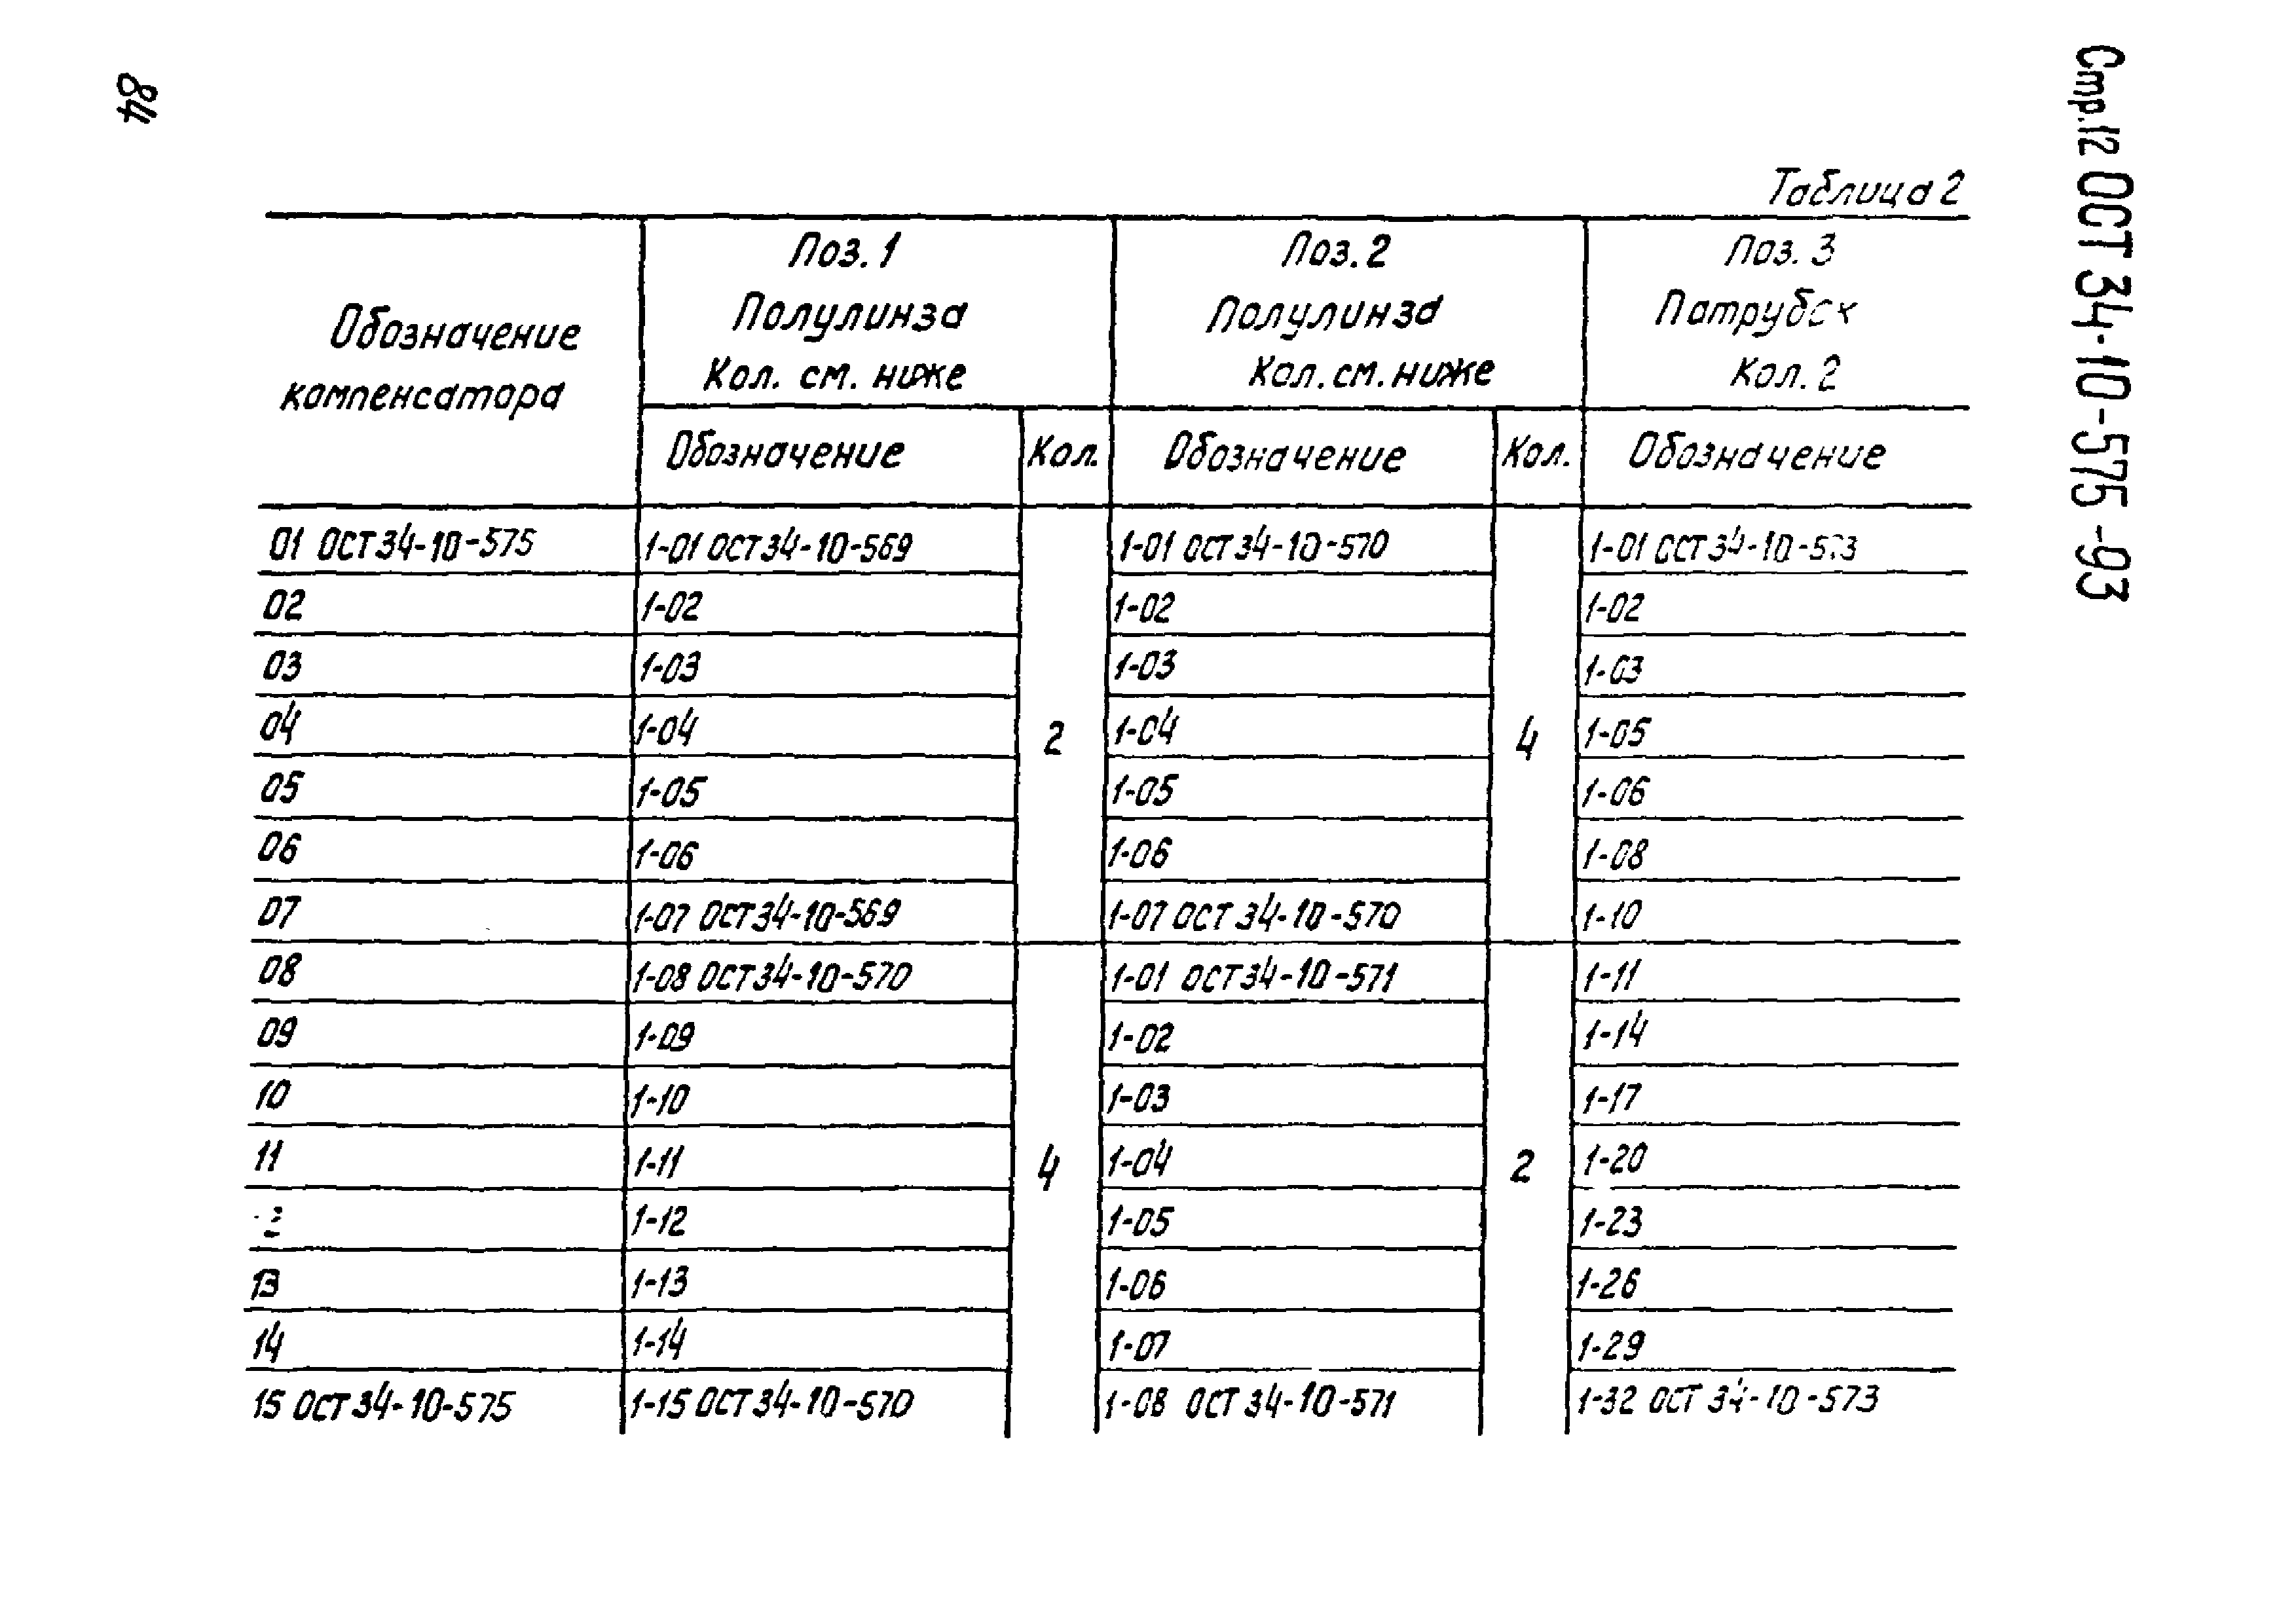 84
Стр.12 ОСТ 34-10-575-93
Таблица 2
Обозначение компенсатора
Поз. 1 Полулинза Кол. см. ниже
Поз. 2 Полулинза Кол. см. ниже
Поз. 3 Патрубок Кол. 2
Обозначение Кол. Обозначение Кол. Обозначение
01 ОСТ 34-10-575 1-01 ОСТ 34-10-569 1-01 ОСТ 34-10-570 1-01 ОСТ 34-10-573
02 1-02 1-02 1-02
03 1-03 1-03 1-03
04 1-04 2 1-04 4 1-05
05 1-05 1-05 1-06
06 1-06 1-06 1-08
07 1-07 ОСТ 34-10-569 1-07 ОСТ 34-10-570 1-10
08 1-08 ОСТ 34-10-570 1-01 ОСТ 34-10-571 1-11
09 1-09 1-02 1-14
10 1-10 1-03 1-17
11 1-11 4 1-04 2 1-20
1-12 1-05 1-23
13 1-13 1-06 1-26
14 1-14 1-07 1-29
15 ОСТ 34-10-575 1-15 ОСТ 34-10-570 1-08 ОСТ 34-10-571 1-32 ОСТ 34-10-573